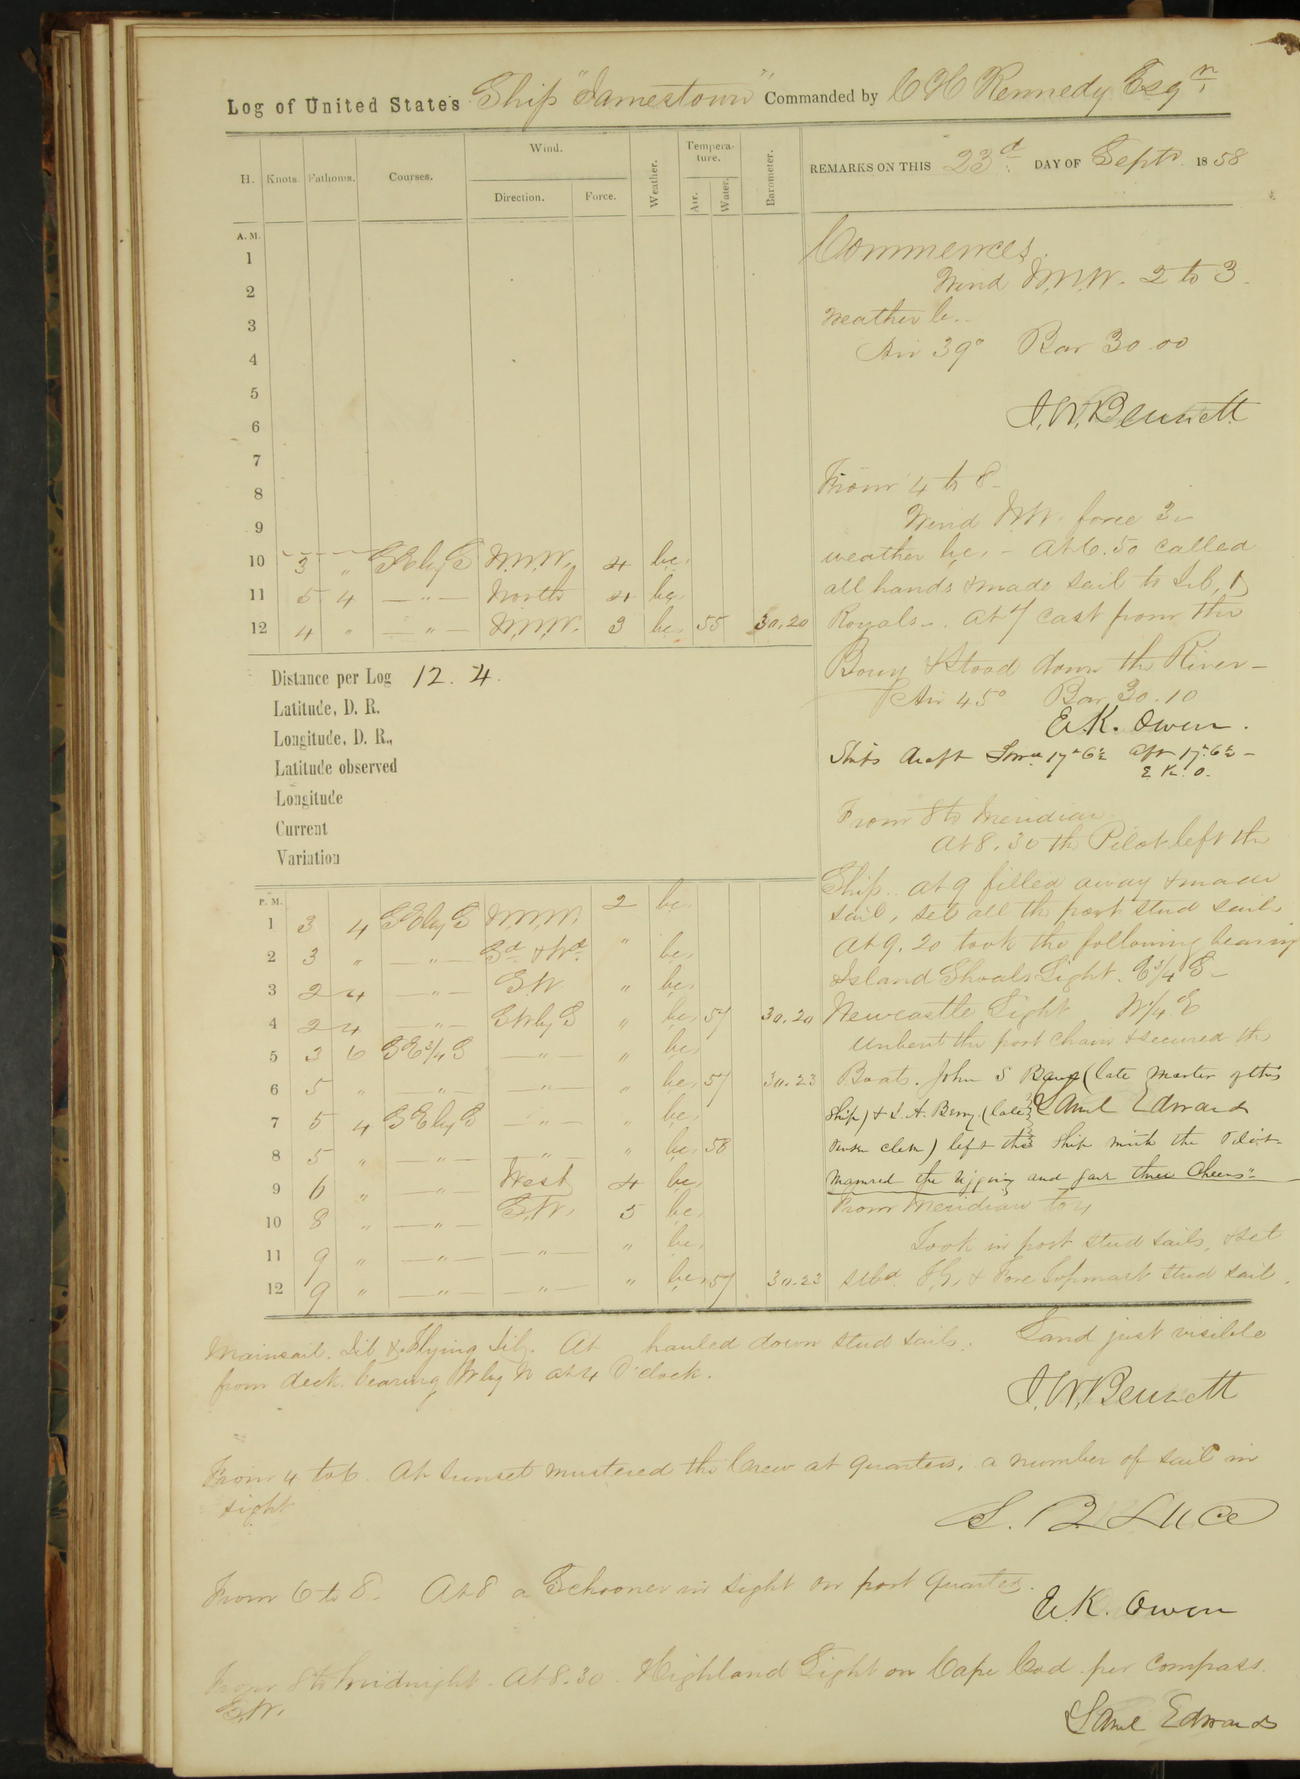 Log of United States Ship "Jamestown" Commanded by C H Kennedy Esqr
H. Knots. Fathoms. Courses. Wind. Direction. Force. Weather. Temperature. Air. Water. Barometer.
REMARKS ON THIS 23d DAY OF Septr 1858
A. M.
1
2
3
4
5
6
7
8
9
10 3 " SE by S N.N.W. 4 bc.
11 5 4 — " — North 4 bc.
12 4 " — " — N.N.W. 3 bc. 55 30.20
Distance per Log 12. 4.
Latitude, D. R.
Longitude, D. R.,
Latitude observed
Longitude
Current
Variation
P. M.
1 3 4 SE by S N.N.W. 2 bc.
2 3 " — " — Sd & Wd " bc.
3 2 4 — " — S.W. " bc.
4 2 4 — " — SW by S " bc. 57 30.20
5 3 6 SE 3/4 S — " — " bc.
6 5 " — " — — " — " bc. 57 30.23
7 5 4 SE by S — " — " bc.
8 5 " — " — — " — " bc. 58
9 6 " — " — West 4 bc.
10 8 " — " — S.W. 5 bc.
11 9 " — " — — " — " bc.
12 9 " — " — — " — " bc. 57 30.23
Commences.
Wind N.N.W. 2 to 3.
Weather b..
Air 39° Bar 30.00
J. W. Bennett
From 4 to 8 -
Wind NW. force 3 -
weather bc. - At 6.50 called
all hands & made sail to Jib, &
Royals -. At 7 cast from the
Bouy & stood down the River -
Air 45° Bar 30.10
E. K. Owen.
Ships draft 17 6 aft 17 6 -
E. K. O.
From 8 to Meridian
At 8.30 the Pilot left the
Ship.. At 9 filled away & made
sail, set all the port stud sails
At 9.20 took the following bearing
Island Shoals Light. E 3/4 S -
Newcastle Light N 1/4 E
Unbent the port chain & secured the
Boats. John S (late Master of this
Ship) & L. A. Berry (late Saml Edwards
clerk) left the Ship with the Pilot
Manned the rigging and gave three Cheers."
From Meridian to 4
Took in port stud sails, & set
stbd. T.G. & Fore Topmast stud sail,
Mainsail. Jib & Flying Jib. At hauled down stud sails. Land just visible
from deck bearing W by N at 4 O'clock.
J. W. Bennett
From 4 to 6. At Sunset mustered the Crew at quarters, a number of sail in
sight
S. B. Luce
From 6 to 8. At 8 a Schooner in sight on port quarter.
E. K. Owen
From 8 to Midnight. At 8.30. Highland Light on Cape Cod per compass
S.W.
Saml Edwards